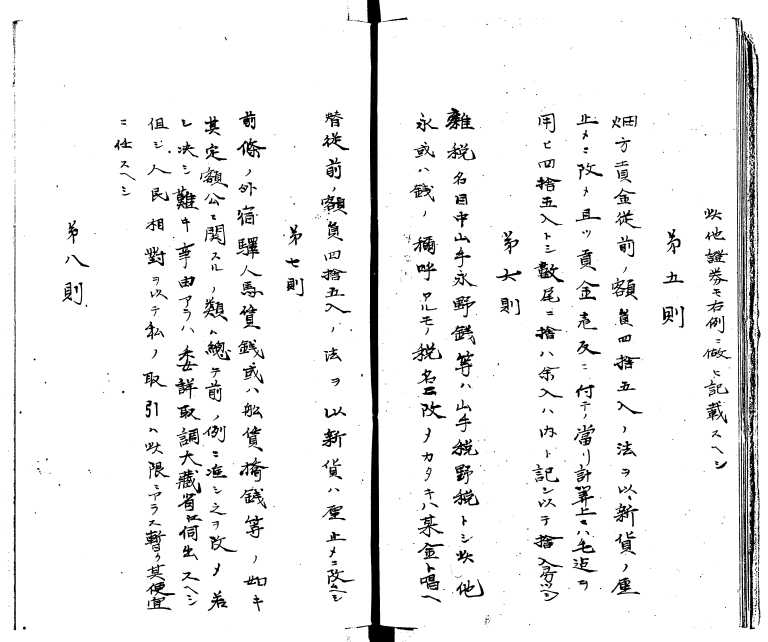 此他證券モ右例ニ倣ヒ記載スヘシ
第五則
畑方貢金從前ノ額員四捨五入ノ法ヲ以新貨ノ厘
止メニ改メ且ツ貢金壱反ニ付テノ當リ計算上ハ毛迠ヲ
用ヒ四捨五入トシ數尾ニ捨ハ余入ハ内ト記シ以テ捨入ヲ分ツヘシ
第六則
雜税名目中山手永野錢等ハ山手税野税トシ此他
永或ハ錢ノ稱呼アルモノ税名ニ改メカタキハ某金ト唱ヘ
皆從前ノ額員四捨五入ノ法ヲ以新貨ハ厘止メニ改ムヘシ
第七則
前條ノ外宿驛人馬賃錢或ハ舩賃橋錢等ノ如キ
其定額公ニ関スルノ類ハ總テ前ノ例ニ准シ之ヲ改メ若
シ决シ難キ事由アラハ委詳取調大藏省江伺出スヘシ
但シ人民相對ヲ以テ私ノ取引ハ此限ニアラス暫ク其便宜
ニ仕スヘシ
第八則